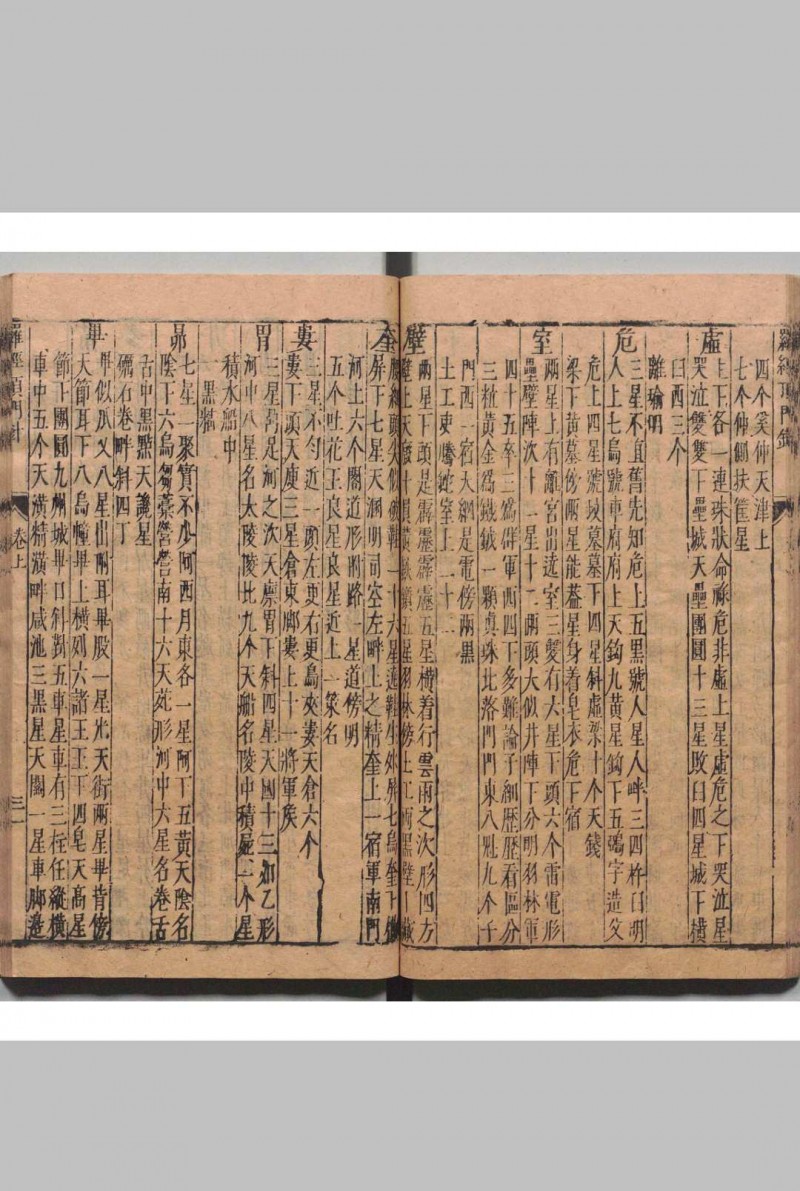 羅經頂門針
四个奚仲天津上
七个仲側扶筐星
虛
上下各一連珠狀命祿危非虛上星虛危之下哭泣星
哭泣雙雙下壘城天壘團圓十三星敗臼四星城下橫
臼西三个
離瑜明
危
三星不直舊先知危上五黑號人星人畔三四杵臼明
人上七烏號車府府上天鈎九黃星鈎下五鴉字造父
危上四星號坟墓墓下四星斜虛梁十个天錢
梁下黃墓傍兩星能葢星身着皂衣危下宿
室
兩星上有離宮出遶室三雙有六星下頭六个雷電形
壘壁陣次十二星十二兩頭大似井陣下分明羽林軍
四十五卒三爲群軍西四下多難論子細歷歷看區分
三粒黃金爲鈇鉞一顆真珠北落門門東八魁九个子
門西一宿天綱是電傍兩黑
土工吏騰蛇室上二十二
壁
兩星下頭是霹靂霹靂五星橫着行雲雨之次形四方
奎
屏下七星天溷明司空左畔土之精奎上一宿軍南門
河上六个閣道形附路一星道傍明
五个吐花王良星良星近上一策名
婁
三星不勻近一頭左更右更烏夾婁天倉六个
婁下頭天庾三星倉東脚婁上十一將軍矦
胃
三星鼎足河之次天廪胃下斜四星天囷十三如乙形
河中八星名太陵陵北九个天船名陵中積屍一个星
積水船中
一黑精
昴
七星一聚實不少阿西月東各一星阿下五黃天陰名
陰下六烏芻藁營營南十六天苑形河中六星名卷舌
舌中黑㸃天讒星
礪石卷畔斜四丁
畢
畢似爪叉八星出兩耳畢股一星光天街兩星畢背傍
天節耳下八烏幢畢上橫列六諸王王下四皂天高星
節下團圓九州城畢口斜對五車星車有三柱任縱橫
車中五个天潢精潢畔咸池三黑星天關一星車脚邊
羅經頂門針
卷上
三一